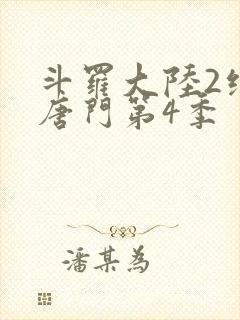 斗羅大陸2絕
唐門第4季
潘某為